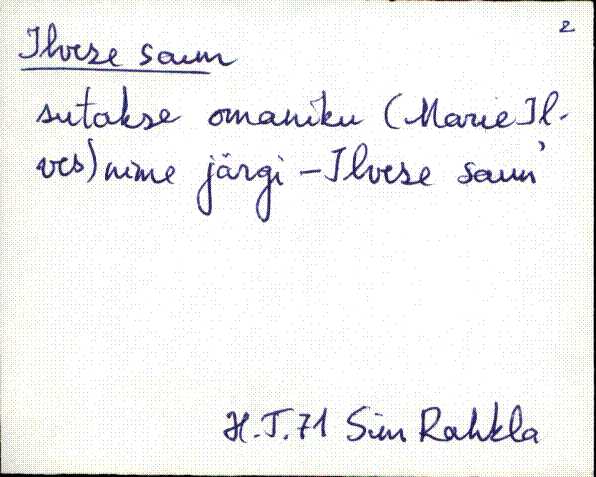 2
Ilvese saun
sutakse omaniku (Marie Il-
ves) nime järgi – Ilvese saun'
H.T.71 Sim Rahkla